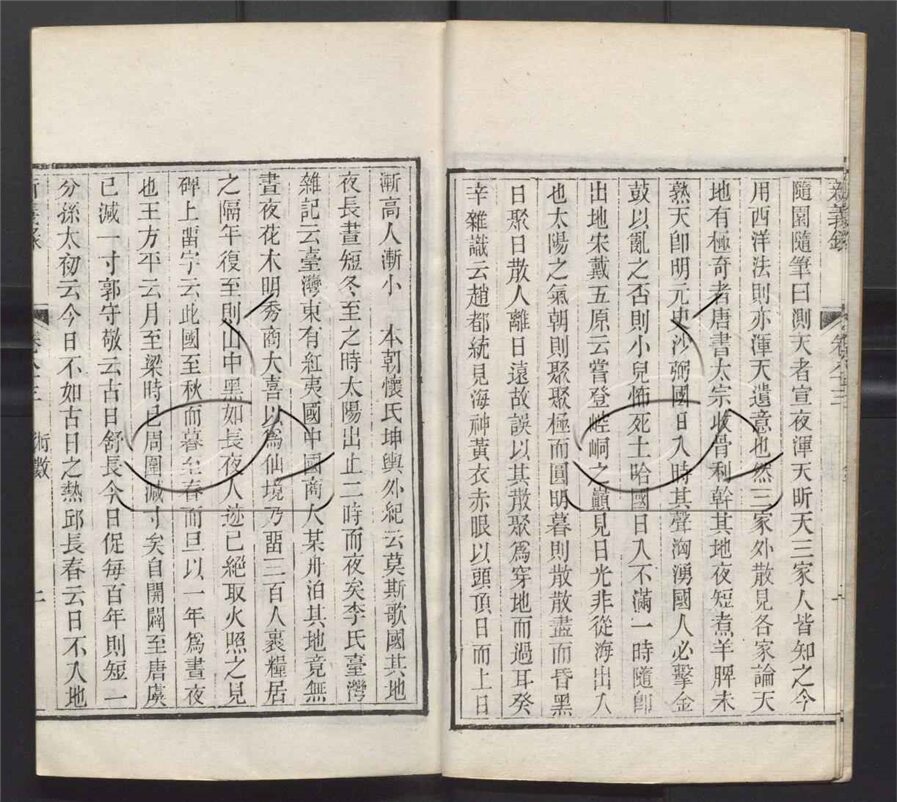 隨園隨筆曰測天者宣夜渾天昕天三家人皆知之今
用西洋法則亦渾天遺意也然三家外散見各家論天
地有極奇者唐書太宗收骨利幹其地夜短煮羊脾未
熟天卽明元史沙弼國日入時其聲洶湧國人必擊金
鼓以亂之否則小兒怖死土哈國日入不滿一時隨卽
出地宋戴五原云嘗登崆峒之巔見日光非從海出入
也太陽之氣朝則聚聚極而圓明暮則散散盡而昏黑
日聚日散人離日遠故誤以其散聚爲穿地而過耳癸
辛雜識云趙都統見海神黃衣赤眼以頭頂日而上日
漸高人漸小 本朝懷氏坤輿外紀云莫斯歌國其地
夜長晝短冬至之時太陽出止二時而夜矣李氏臺灣
雜記云臺灣東有紅夷國中國商人某舟泊其地竟無
晝夜花木明秀商大喜以爲仙境乃畱三百人裹糧居
之隔年復至則山中黑如長夜人迹已絕取火照之見
碑上畱字云此國至秋而暮至春而旦以一年爲晝夜
也王方平云月至梁時已周圍減寸矣自開闢至唐虞
已減一寸郭守敬云古日舒長今日促每百年則短一
分孫太初云今日不如古日之熱邱長春云日不入地
卷八十三 術數